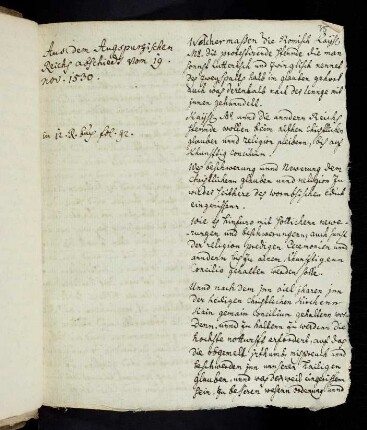 Aus dem Augspurgischen
Reichs abschiedt vom 19
nov. 1530.
in 12. R. buch fol. 92.
Welcher massen die Römisch Kayss.
Mt. die protestirende Stennde die man
sonnst Lutterisch und Zwinglisch nennet
des zwayspalts halb im glauben gehort
auch was derenhalb nach der lennge mit
jnen gehanndelt.
Kayss. Mt. unnd die anndern Reichs
Stennde wollen beim alten christlichen
glauben unnd religion pleiben, bis auf
khunfftig concilium.
Was beschwerung unnd Newerung dem
Christlichem glauben unnd religion zu
wider seithere des wormbsischen edict
eingerissen.
Wie es hinfuro mit sollichenn newe-
rungen und beschwerungen, auch sonst
der religion predigen Ceremonien und
anndern biss zu ainem künfftigenn
Concilio gehalten werden solle.
Unnd nach dem jnn viel jharen jnn
der heiligen christlichen Kirchenn
kain gemain Concilium gehalten wor-
denn, unnd zu halten zu werdenn die
hochste notturfft erfordert, auf das
die obgemelt jrthumb misspreuch und
beschwerden jnn unnserm hailigen
glauben, unnd was derweil eingerissen
sein, zu besserem wesenn ordnung und